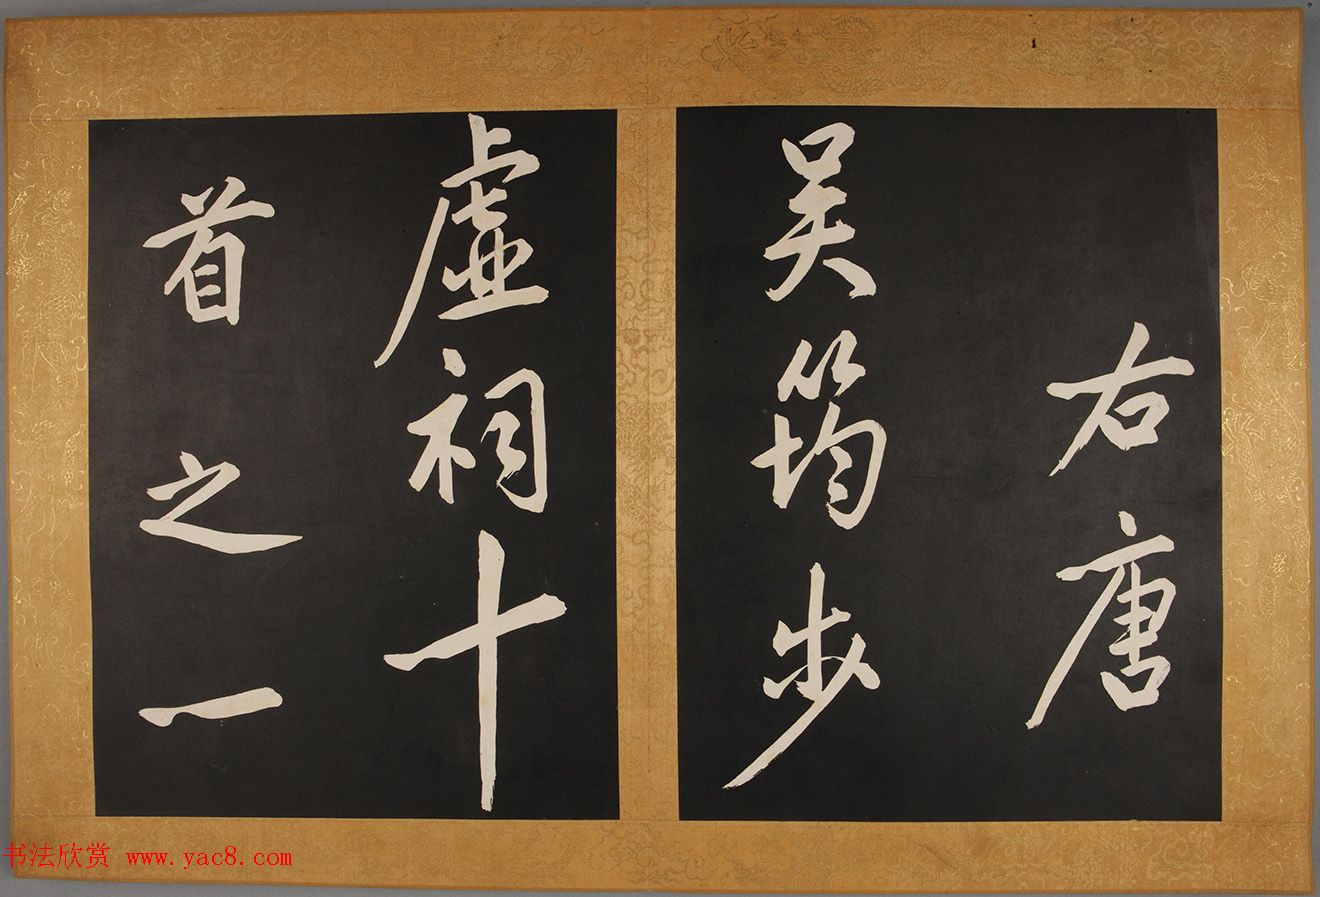 右唐
吴筠步
虚祠十
首之一
书法欣赏 www.yac8.com